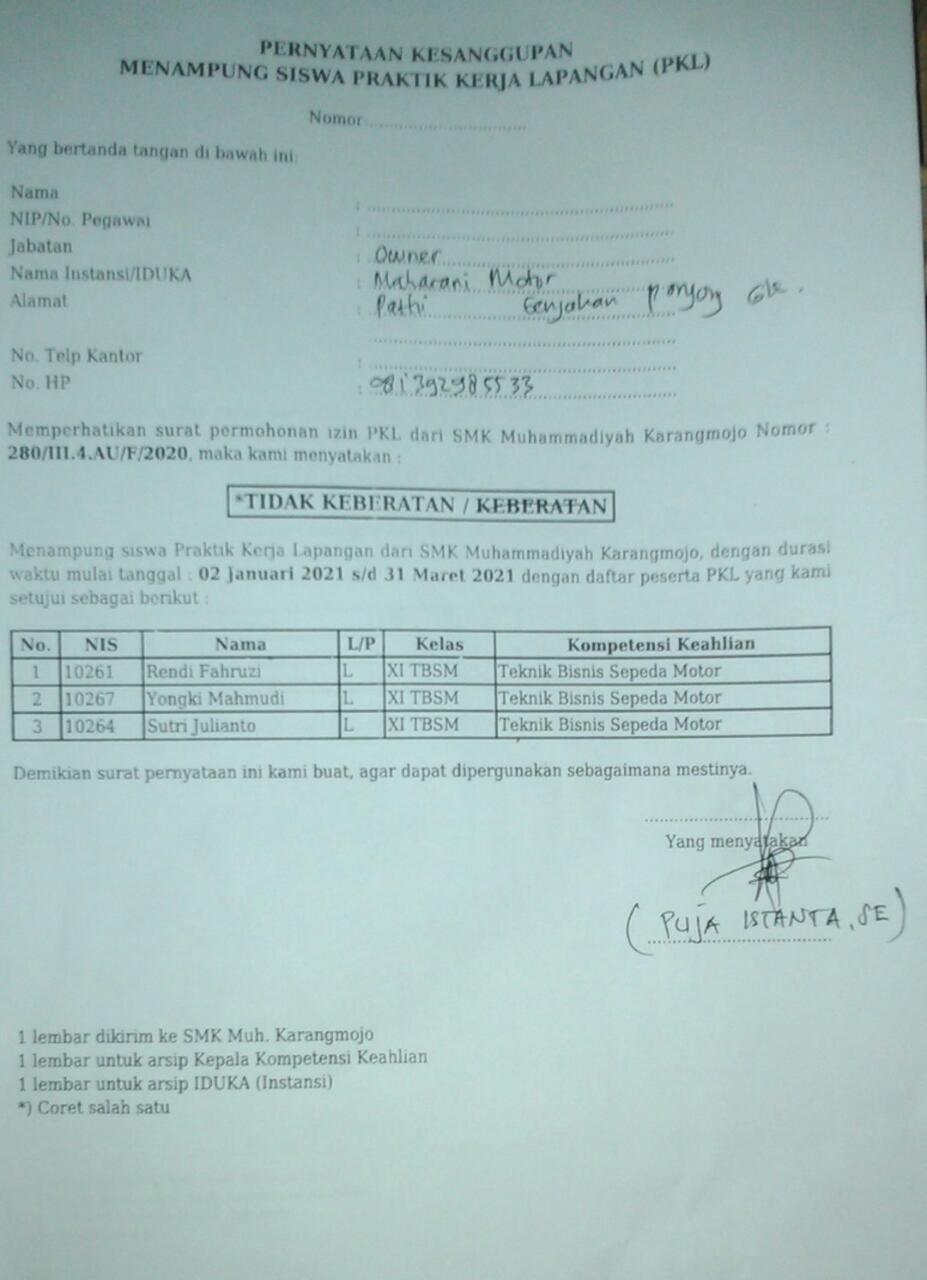 PERNYATAAN KESANGGUPAN
MENAMPUNG SISWA PRAKTIK KERJA LAPANGAN (PKL)
Nomor
Yang bertanda tangan di bawah ini:
Nama :
NIP/No. Pegawai :
Jabatan : Owner
Nama Instansi/IDUKA : Maharani Motor
Alamat : Pathi Genjahan Ponjong GK.
No. Telp Kantor :
No. HP : 081392985533
Memperhatikan surat permohonan izin PKL dari SMK Muhammadiyah Karangmojo Nomor :
280/III.4.AU/F/2020, maka kami menyatakan :
*TIDAK KEBERATAN / KEBERATAN
Menampung siswa Praktik Kerja Lapangan dari SMK Muhammadiyah Karangmojo, dengan durasi
waktu mulai tanggal : 02 Januari 2021 s/d 31 Maret 2021 dengan daftar peserta PKL yang kami
setujui sebagai berikut :
No. NIS Nama L/P Kelas Kompetensi Keahlian
1 10261 Rendi Fahruzi L XI TBSM Teknik Bisnis Sepeda Motor
2 10267 Yongki Mahmudi L XI TBSM Teknik Bisnis Sepeda Motor
3 10264 Sutri Julianto L XI TBSM Teknik Bisnis Sepeda Motor
Demikian surat pernyataan ini kami buat, agar dapat dipergunakan sebagaimana mestinya.
Yang menyatakan
(PUJA ISTANTA, SE)
1 lembar dikirim ke SMK Muh. Karangmojo
1 lembar untuk arsip Kepala Kompetensi Keahlian
1 lembar untuk arsip IDUKA (Instansi)
*) Coret salah satu